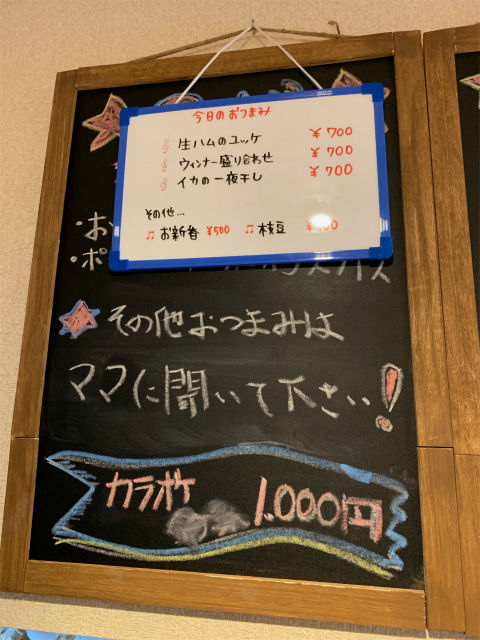 今日のおつまみ
生ハムのユッケ ¥700
ウィンナー盛り合わせ ¥700
イカの一夜干し ¥700
その他…
♫ お新香 ¥500 ♫ 枝豆
・お
・ポ
その他おつまみは
ママに聞いて下さい!
カラオケ 1.000円